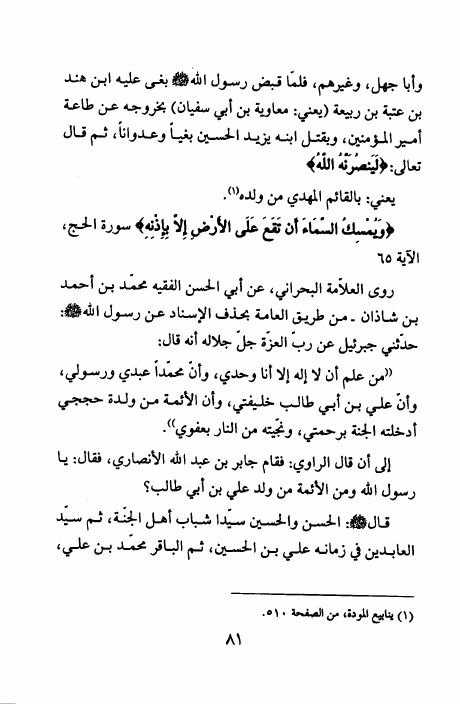 وأبا جهل، وغيرهم، فلمّا قبض رسول الله ﷺ بغى عليه ابن هند
بن عتبة بن ربيعة (يعني: معاوية بن أبي سفيان) بخروجه عن طاعة
أمير المؤمنين، وبقتل ابنه يزيد الحسين بغياً وعدواناً، ثم قال
تعالى: ﴿لَيَنصُرَنَّهُ اللَّهُ﴾
يعني: بالقائم المهدي من ولده(١).
﴿وَيُمْسِكُ السَّمَاءَ أَن تَقَعَ عَلَى الأَرْضِ إِلاَّ بِإِذْنِهِ﴾ سورة الحج،
الآية ٦٥
روى العلاّمة البحراني، عن أبي الحسن الفقيه محمّد بن أحمد
بن شاذان ـ من طريق العامة بحذف الإسناد عن رسول الله ﷺ:
حدّثني جبرئيل عن ربّ العزّة جلّ جلاله أنه قال:
«من علم أن لا إله إلا أنا وحدي، وأنّ محمّداً عبدي ورسولي،
وأنّ علي بن أبي طالب خليفتي، وأن الأئمة من ولدة حججي
أدخلته الجنة برحمتي، ونجّيته من النار بعفوي».
إلى أن قال الراوي: فقام جابر بن عبد الله الأنصاري، فقال: يا
رسول الله ومن الأئمة من ولد علي بن أبي طالب؟
قال ﷺ: الحسن والحسين سيّدا شباب أهل الجنّة، ثم سيّد
العابدين في زمانه علي بن الحسين، ثم الباقر محمّد بن علي،
(١) ينابيع المودة، من الصفحة ٥١٠.
٨١